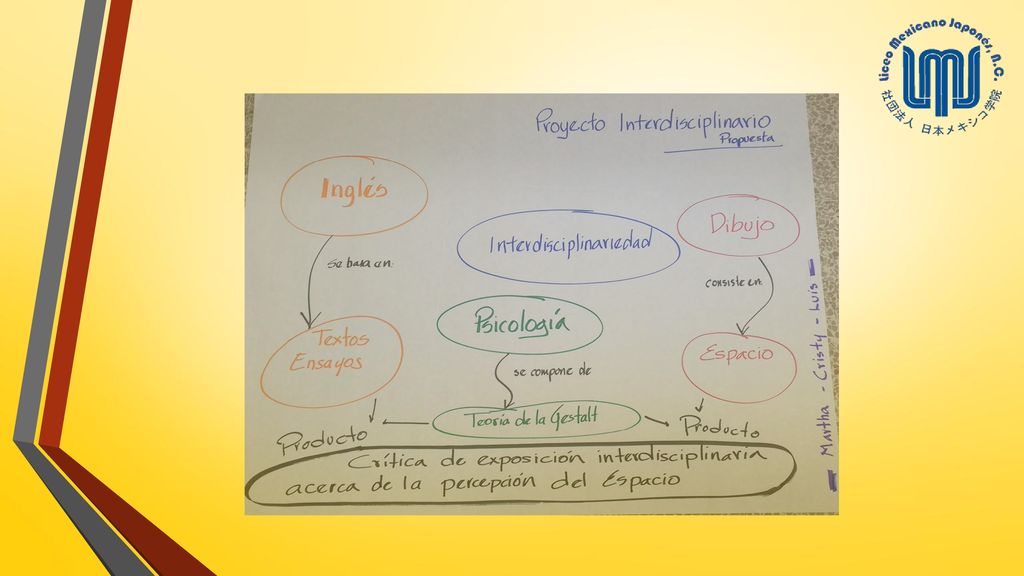 Liceo Mexicano Japonés, A.C.
社団法人 日本メキシコ学院
Proyecto Interdisciplinario
Propuesta
Inglés
Interdisciplinariedad
Dibujo
se basa en:
consiste en:
Psicología
Textos
Ensayos
se compone de
Espacio
Teoría de la Gestalt
Producto
Producto
Crítica de exposición interdisciplinaria
acerca de la percepción del Espacio
Martha - Cristy - Luis